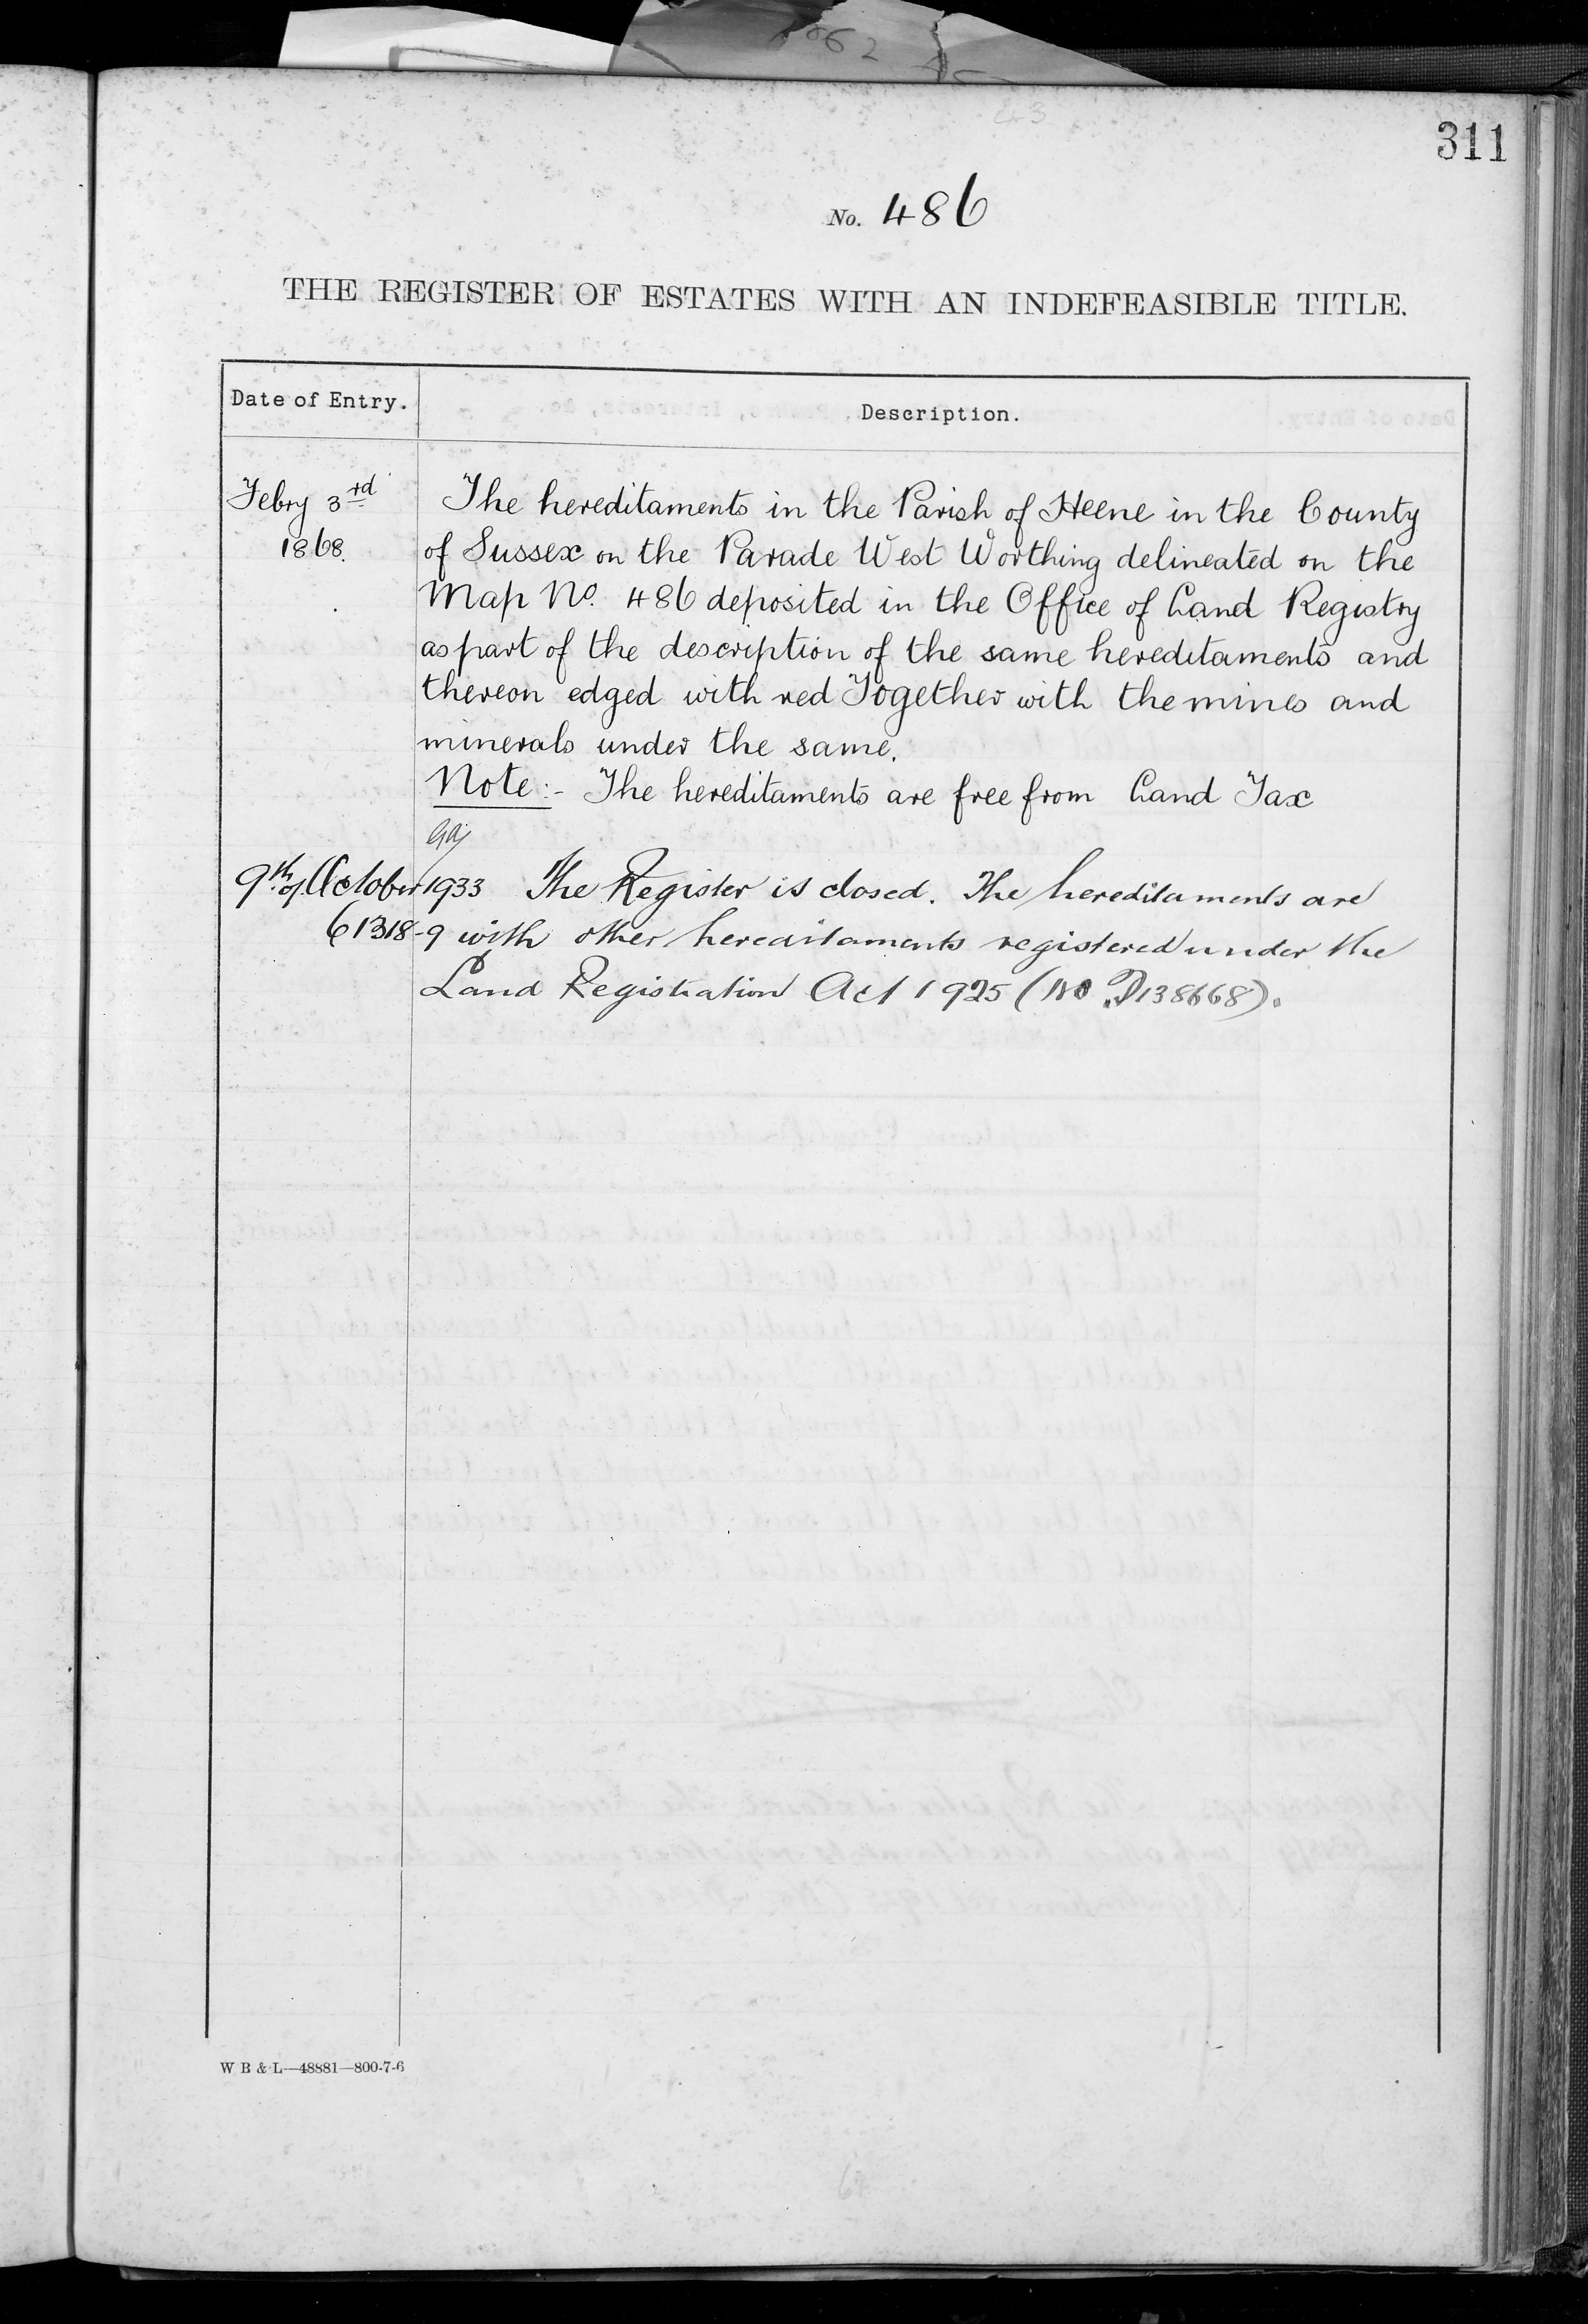 311
No. 486
THE REGISTER OF ESTATES WITH AN INDEFEASIBLE TITLE.
Date of Entry.
Description.
Febry 3rd
1868.
The hereditaments in the Parish of Heene in the County
of Sussex on the Parade West Worthing delineated on the
Map No. 486 deposited in the Office of Land Registry
as part of the description of the same hereditaments and
thereon edged with red Together with the mines and
minerals under the same.
Note:- The hereditaments are free from Land Tax
9th of October 1933 The Register is closed. The hereditaments are
61318-9 with other hereditaments registered under the
Land Registration Act 1925 (No. P138668).
W B & L—48881—800-7-6